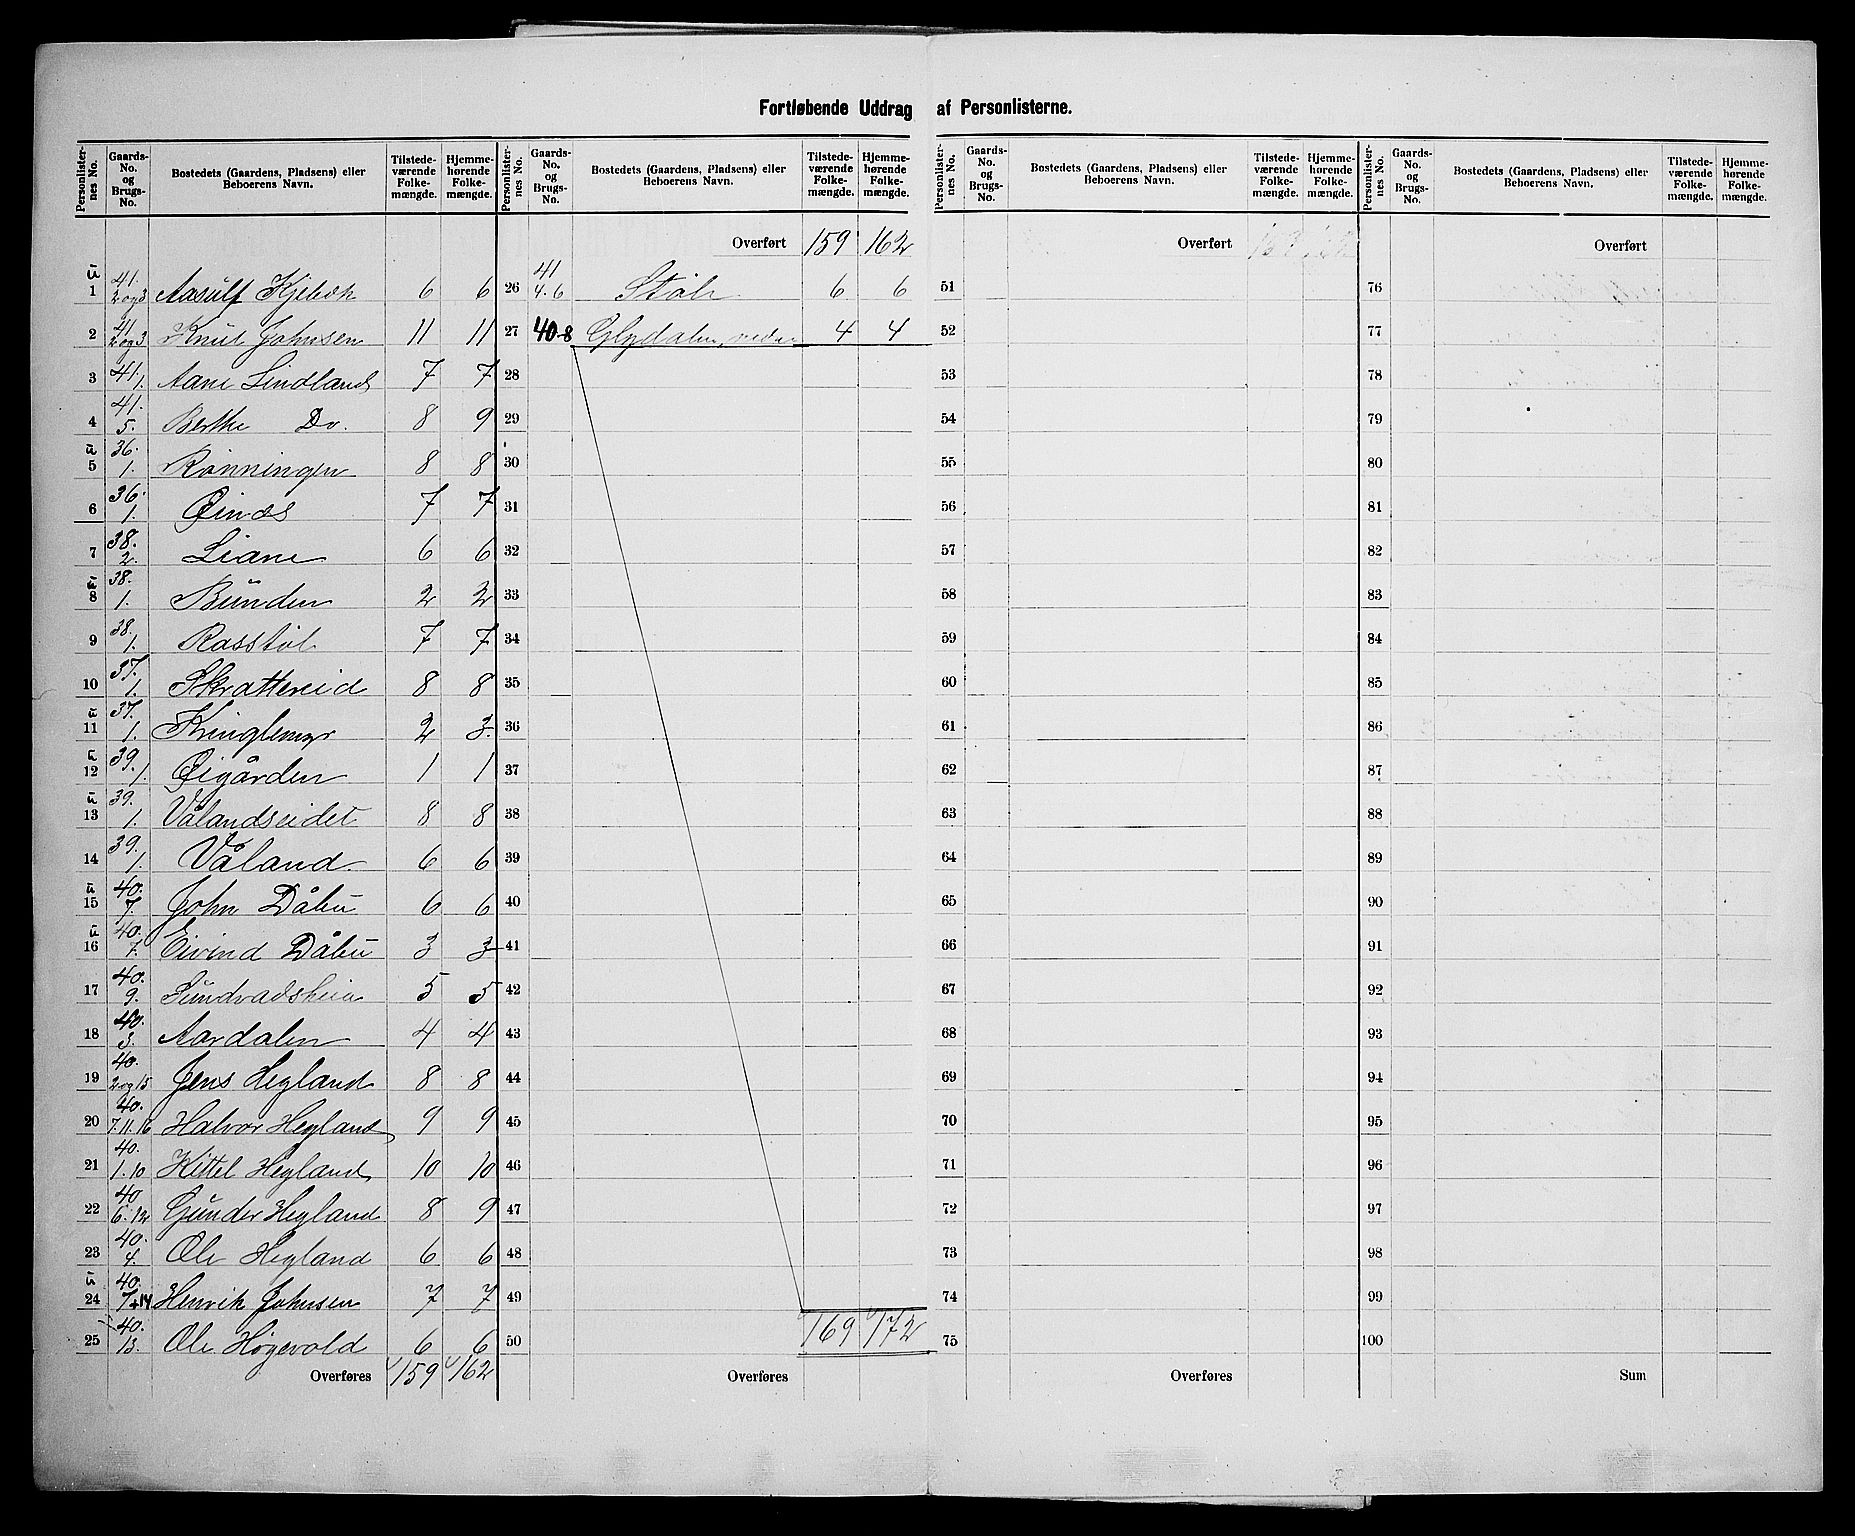 Fortløbende Uddrag af Personlisterne.
Personlister-nes No. Gaards-No. og Brugs-No. Bostedets (Gaardens, Pladsens) eller Beboerens Navn. Tilstede-værende Folke-mængde. Hjemme-hørende Folke-mængde.
ü 1 41. 2 og 3 Aasulf Kjebek 6 6
2 41. 2 og 3 Knut Johnsen 11 11
3 41. 1. Aane Lindland 7 7
4 41. 5. Berthe Do. 8 9
ü 5 36. 1. Rønningen 8 8
6 36. 1. Øinæs 7 7
7 38. 2. Liane 6 6
8 38. 1. Bunden 2 2
9 38. 1. Rosstøl 7 7
10 37. 1. Skrattereid 8 8
ü 11 37. 1. Kringlemyr 2 3
12 39. 1. Øigården 1 1
ü 13 39. 1. Vålandseidet 8 8
14 39. 1. Våland 6 6
ü 15 40. 7. John Dåbu 6 6
ü 16 40. 7. Eivind Dåbu 3 3
17 40. 9. Sundvadsheia 5 5
18 40. 3. Aardalen 4 4
19 40. 2 og 15 Jens Hegland 8 8
20 40. 7. 11. 16 Halvor Hegland 9 9
21 40. 1. 10 Kittel Hegland 10 10
22 40 6. 12 Gunder Hegland 8 9
23 40. 4. Ole Hegland 6 6
ü 24 40. 7+14 Henrik Johnsen 7 7
25 40. 13. Ole Høgevold 6 6
Overføres 159 162
Personlister-nes No. Gaards-No. og Brugs-No. Bostedets (Gaardens, Pladsens) eller Beboerens Navn. Tilstede-værende Folke-mængde. Hjemme-hørende Folke-mængde.
Overført 159 162
26 41 4. 6 Støle 6 6
27 40-8 Glydalen, nedre 4 4
28
29
30
31
32
33
34
35
36
37
38
39
40
41
42
43
44
45
46
47
48
49
50 169 172
Overføres
Personlister-nes No. Gaards-No. og Brugs-No. Bostedets (Gaardens, Pladsens) eller Beboerens Navn. Tilstede-værende Folke-mængde. Hjemme-hørende Folke-mængde.
Overført
51
52
53
54
55
56
57
58
59
60
61
62
63
64
65
66
67
68
69
70
71
72
73
74
75
Overføres
Personlister-nes No. Gaards-No. og Brugs-No. Bostedets (Gaardens, Pladsens) eller Beboerens Navn. Tilstede-værende Folke-mængde. Hjemme-hørende Folke-mængde.
Overført
76
77
78
79
80
81
82
83
84
85
86
87
88
89
90
91
92
93
94
95
96
97
98
99
100
Sum